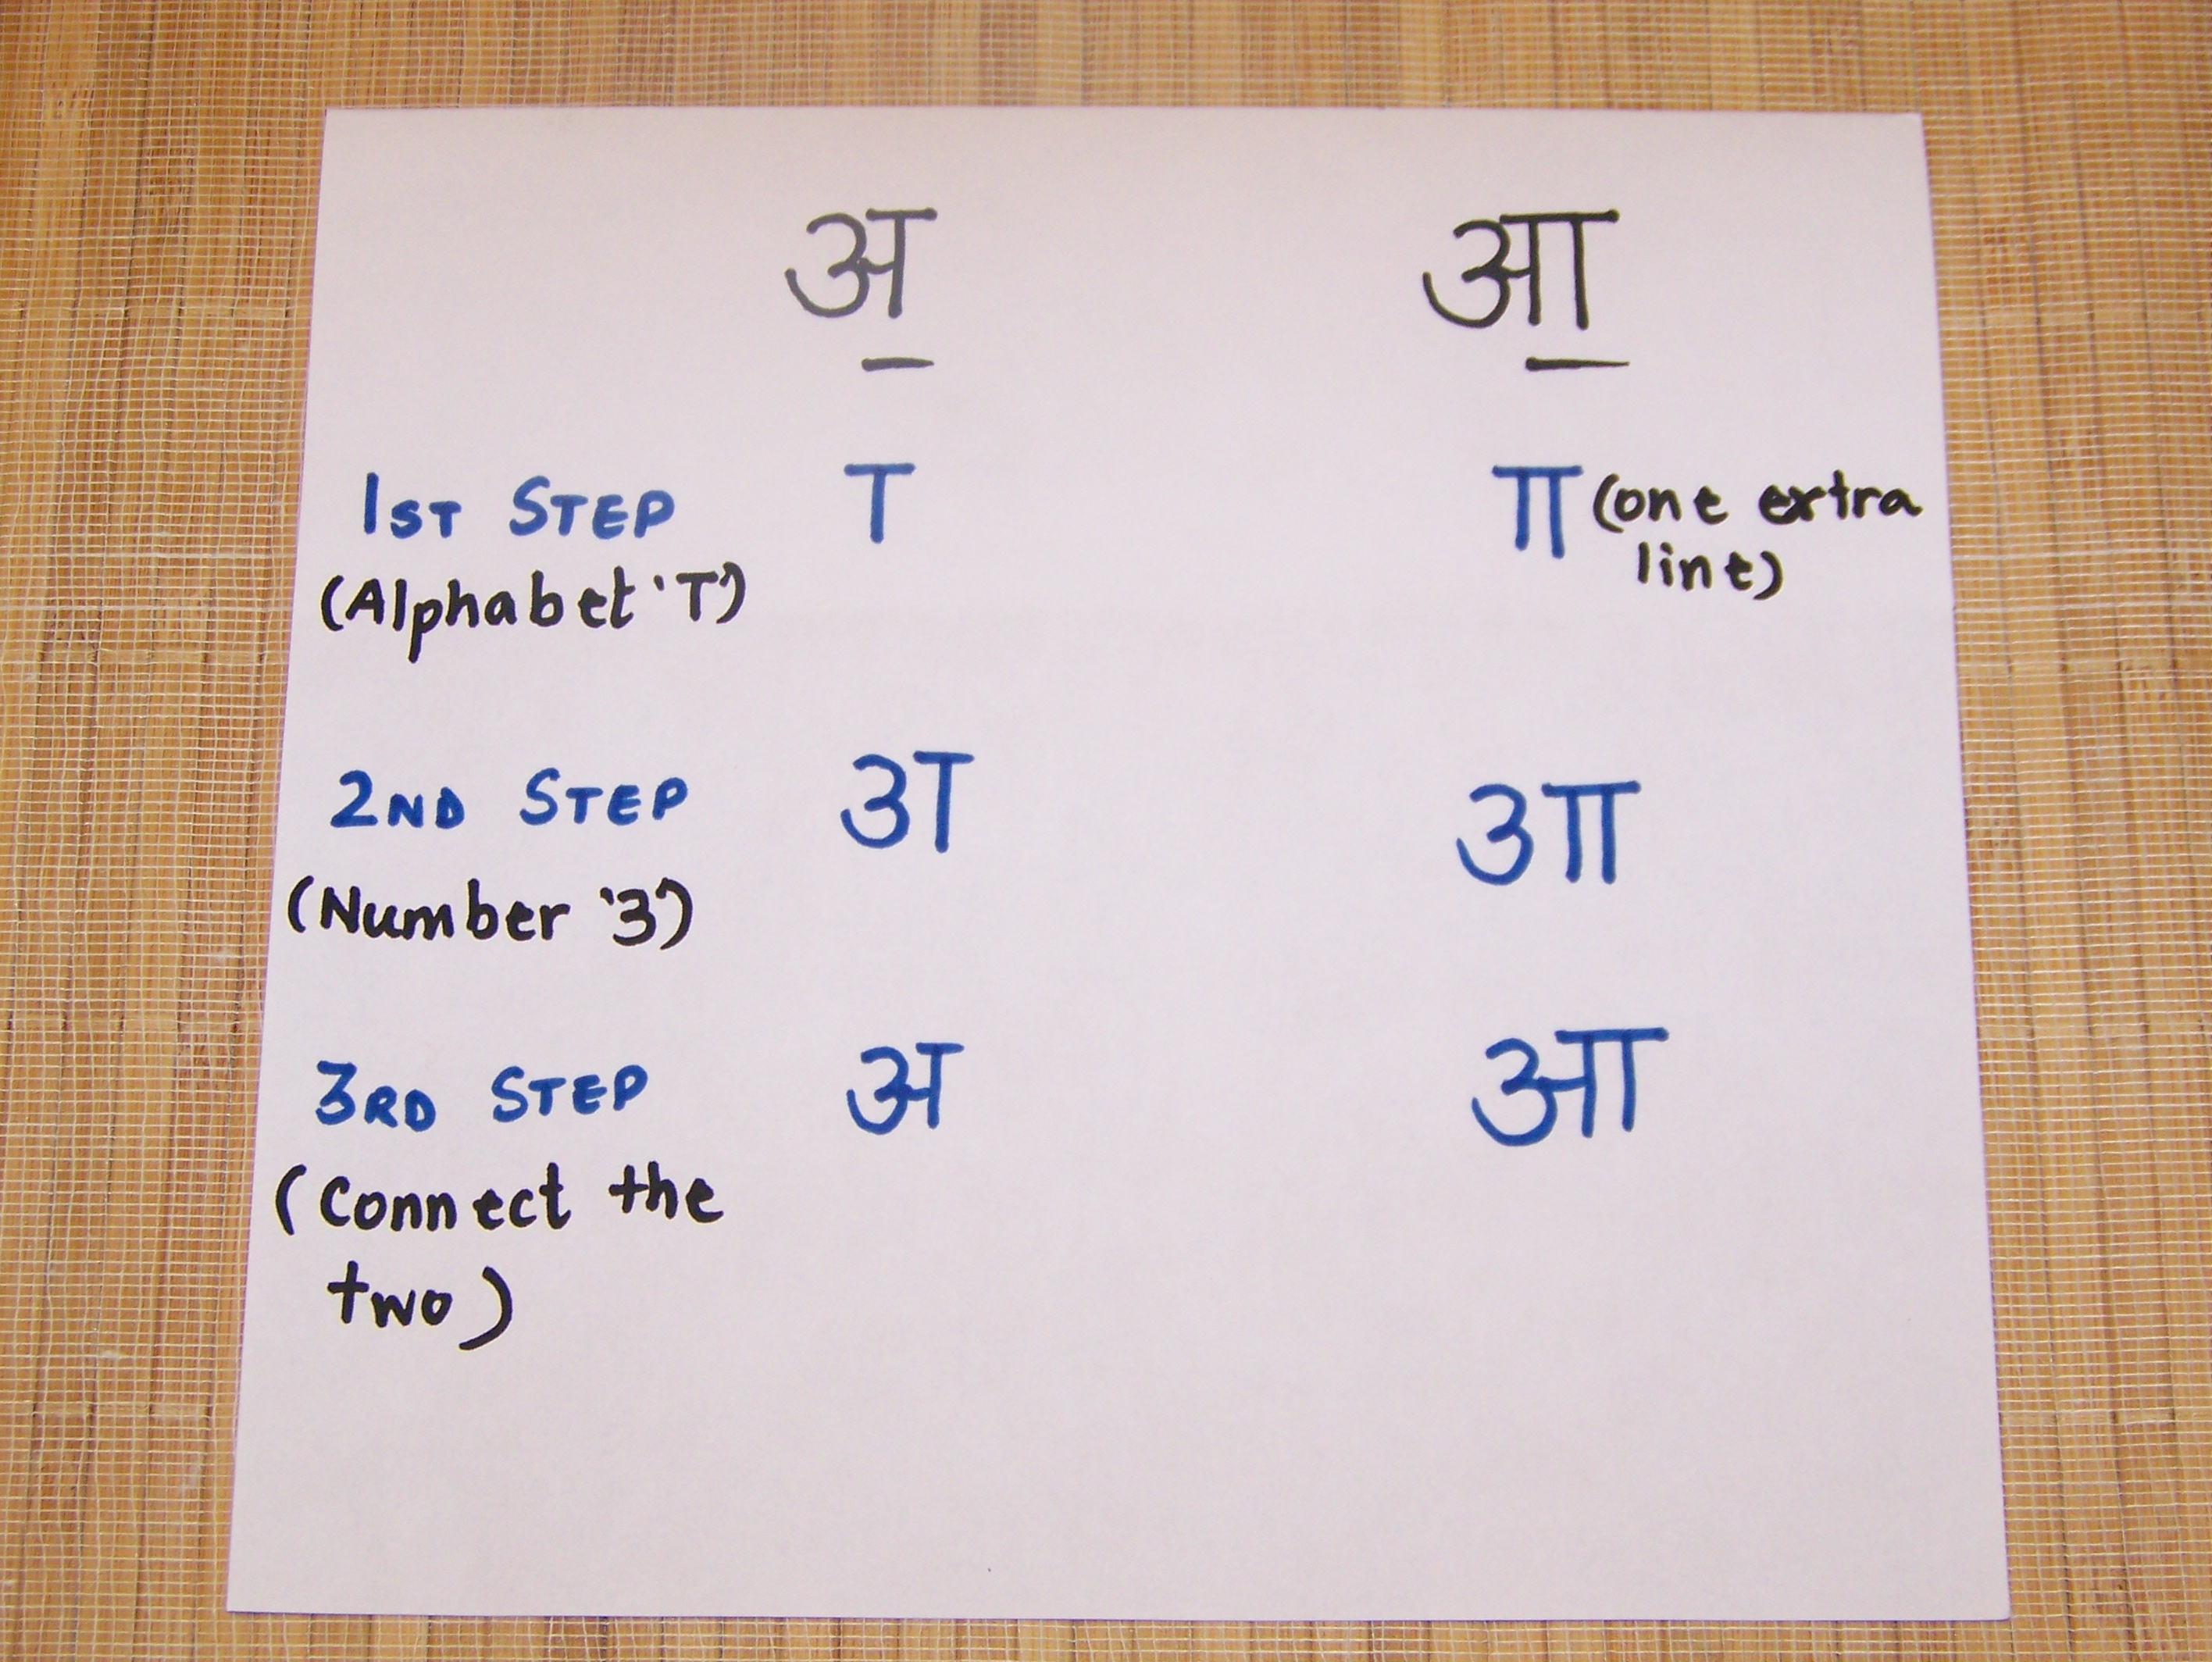 अ आ
1ST STEP T π (one extra
(Alphabet 'T') line)
2ND STEP 3T 3π
(Number '3')
3RD STEP अ आ
(Connect the
two)